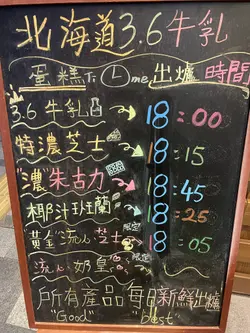 北海道3.6牛乳
蛋糕Time出爐時間
3.6牛乳 18:00
特濃芝士 18:15
"濃"朱古力 18:45
椰汁班蘭 18:25
黃金"流心"芝士 限定 18:05
流心奶皇 限定
所有產品每日新鮮出爐
"Good" "best"